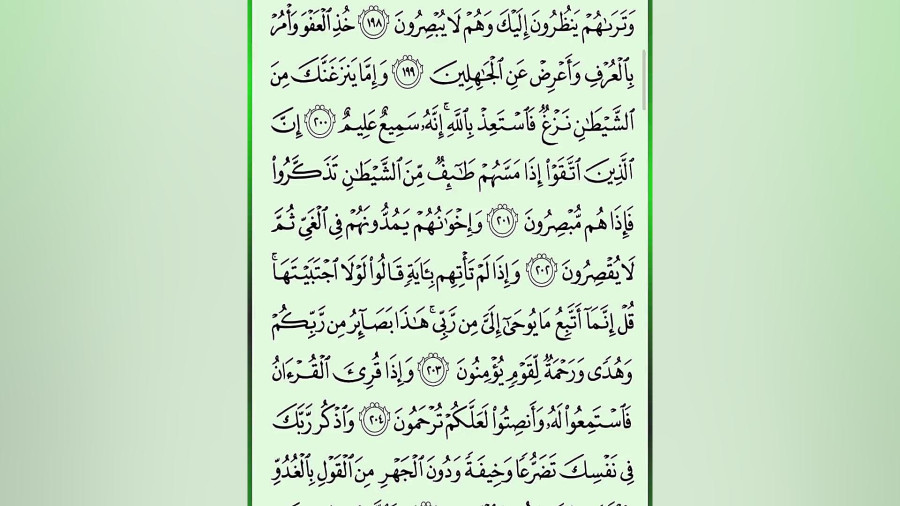 وَتَرَىٰهُمْ يَنظُرُونَ إِلَيْكَ وَهُمْ لَا يُبْصِرُونَ ١٩٨ خُذِ ٱلْعَفْوَ وَأْمُرْ
بِٱلْعُرْفِ وَأَعْرِضْ عَنِ ٱلْجَٰهِلِينَ ١٩٩ وَإِمَّا يَنزَغَنَّكَ مِنَ
ٱلشَّيْطَٰنِ نَزْغٌ فَٱسْتَعِذْ بِٱللَّهِ ۚ إِنَّهُۥ سَمِيعٌ عَلِيمٌ ٢٠٠ إِنَّ
ٱلَّذِينَ ٱتَّقَوْا۟ إِذَا مَسَّهُمْ طَٰٓئِفٌ مِّنَ ٱلشَّيْطَٰنِ تَذَكَّرُوا۟
فَإِذَا هُم مُّبْصِرُونَ ٢٠١ وَإِخْوَٰنُهُمْ يَمُدُّونَهُمْ فِى ٱلْغَىِّ ثُمَّ
لَا يُقْصِرُونَ ٢٠٢ وَإِذَا لَمْ تَأْتِهِم بِـَٔايَةٍ قَالُوا۟ لَوْلَا ٱجْتَبَيْتَهَا ۚ
قُلْ إِنَّمَآ أَتَّبِعُ مَا يُوحَىٰٓ إِلَىَّ مِن رَّبِّى ۚ هَٰذَا بَصَآئِرُ مِن رَّبِّكُمْ
وَهُدًى وَرَحْمَةٌ لِّقَوْمٍ يُؤْمِنُونَ ٢٠٣ وَإِذَا قُرِئَ ٱلْقُرْءَانُ
فَٱسْتَمِعُوا۟ لَهُۥ وَأَنصِتُوا۟ لَعَلَّكُمْ تُرْحَمُونَ ٢٠٤ وَٱذْكُر رَّبَّكَ
فِى نَفْسِكَ تَضَرُّعًا وَخِيفَةً وَدُونَ ٱلْجَهْرِ مِنَ ٱلْقَوْلِ بِٱلْغُدُوِّ